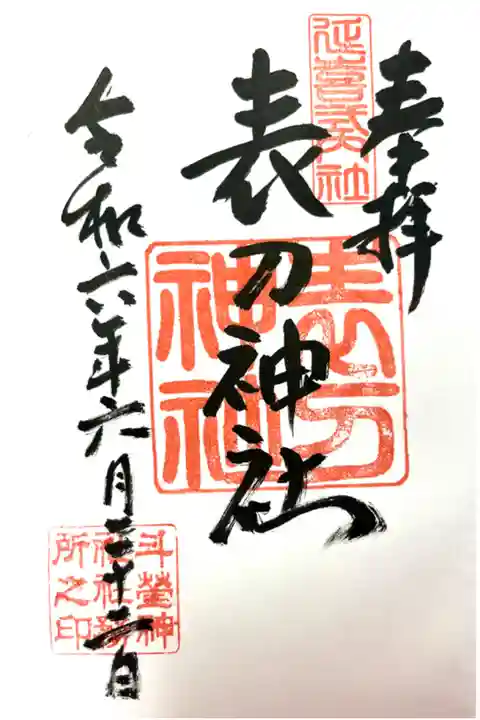 奉拝
延喜式社
表刀神社
表刀
神社
令和六年六月二十二日
斗瑩神
社社務
所之印